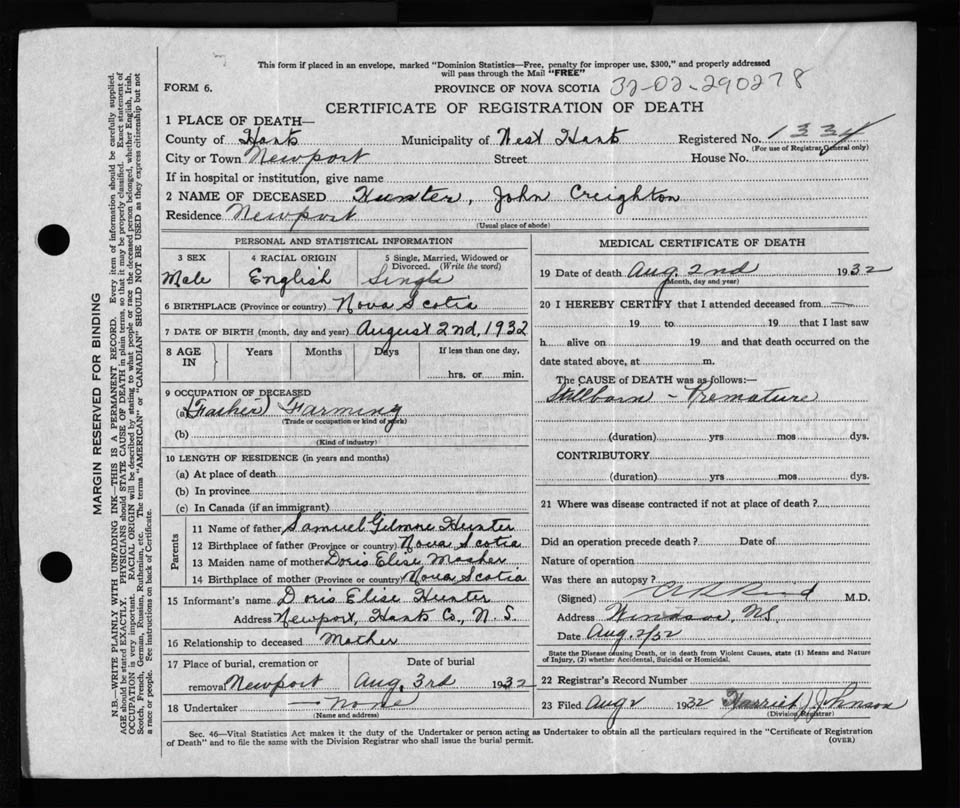 This form if placed in an envelope, marked "Dominion Statistics—Free, penalty for improper use, $300," and properly addressed
will pass through the Mail "FREE"
FORM 6.
PROVINCE OF NOVA SCOTIA 32-02-290278
CERTIFICATE OF REGISTRATION OF DEATH
1 PLACE OF DEATH—
County of Hants Municipality of West Hants Registered No. 1334
(For use of Registrar General only)
City or Town Newport Street House No.
If in hospital or institution, give name
2 NAME OF DECEASED Hunter, John Creighton
Residence Newport
(Usual place of abode)
PERSONAL AND STATISTICAL INFORMATION
3 SEX 4 RACIAL ORIGIN 5 Single, Married, Widowed or
Divorced. (Write the word)
Male English Single
6 BIRTHPLACE (Province or country) Nova Scotia
7 DATE OF BIRTH (month, day and year) August 2nd, 1932
8 AGE IN Years Months Days If less than one day,
hrs. or min.
9 OCCUPATION OF DECEASED
(a) (Father) Farming
(Trade or occupation or kind of work)
(b)
(Kind of industry)
10 LENGTH OF RESIDENCE (in years and months)
(a) At place of death
(b) In province
(c) In Canada (if an immigrant)
Parents
11 Name of father Samuel Gilmore Hunter
12 Birthplace of father (Province or country) Nova Scotia
13 Maiden name of mother Doris Elise Mosher
14 Birthplace of mother (Province or country) Nova Scotia
15 Informant's name Doris Elise Hunter
Address Newport, Hants Co., N.S.
16 Relationship to deceased Mother
17 Place of burial, cremation or Date of burial
removal Newport Aug. 3rd 1932
18 Undertaker — none
(Name and address)
MEDICAL CERTIFICATE OF DEATH
19 Date of death Aug. 2nd 1932
(Month, day and year)
20 I HEREBY CERTIFY that I attended deceased from
19 to 19 that I last saw
h alive on 19 and that death occurred on the
date stated above, at m.
The CAUSE OF DEATH was as follows:—
Stillborn - Premature
(duration) yrs mos dys.
CONTRIBUTORY
(duration) yrs mos dys.
21 Where was disease contracted if not at place of death?
Did an operation precede death? Date of
Nature of operation
Was there an autopsy?
(Signed) M.D.
Address Windsor, N.S.
Date Aug. 2/32
State the Disease causing Death, or in death from Violent Causes, state (1) Means and Nature
of Injury, (2) whether Accidental, Suicidal or Homicidal.
22 Registrar's Record Number
23 Filed Aug 2 1932 Harriet J. Johnson
(Division Registrar)
Sec. 46—Vital Statistics Act makes it the duty of the Undertaker or person acting as Undertaker to obtain all the particulars required in the "Certificate of Registration
of Death" and to file the same with the Division Registrar who shall issue the burial permit.
(OVER)
MARGIN RESERVED FOR BINDING
N.B.—WRITE PLAINLY WITH UNFADING INK—THIS IS A PERMANENT RECORD. Every item of information should be carefully supplied.
AGE should be stated EXACTLY. PHYSICIANS should STATE CAUSE OF DEATH in plain terms, so that it may be properly classified. Exact statement of
OCCUPATION is very important. RACIAL ORIGIN will be described by stating to what people or race the deceased person belonged, whether English, Irish,
Scotch, French, German, Russian, Ruthenian, etc. The terms "AMERICAN" or "CANADIAN" SHOULD NOT BE USED as they express citizenship but not
a race or people. See instructions on back of Certificate.